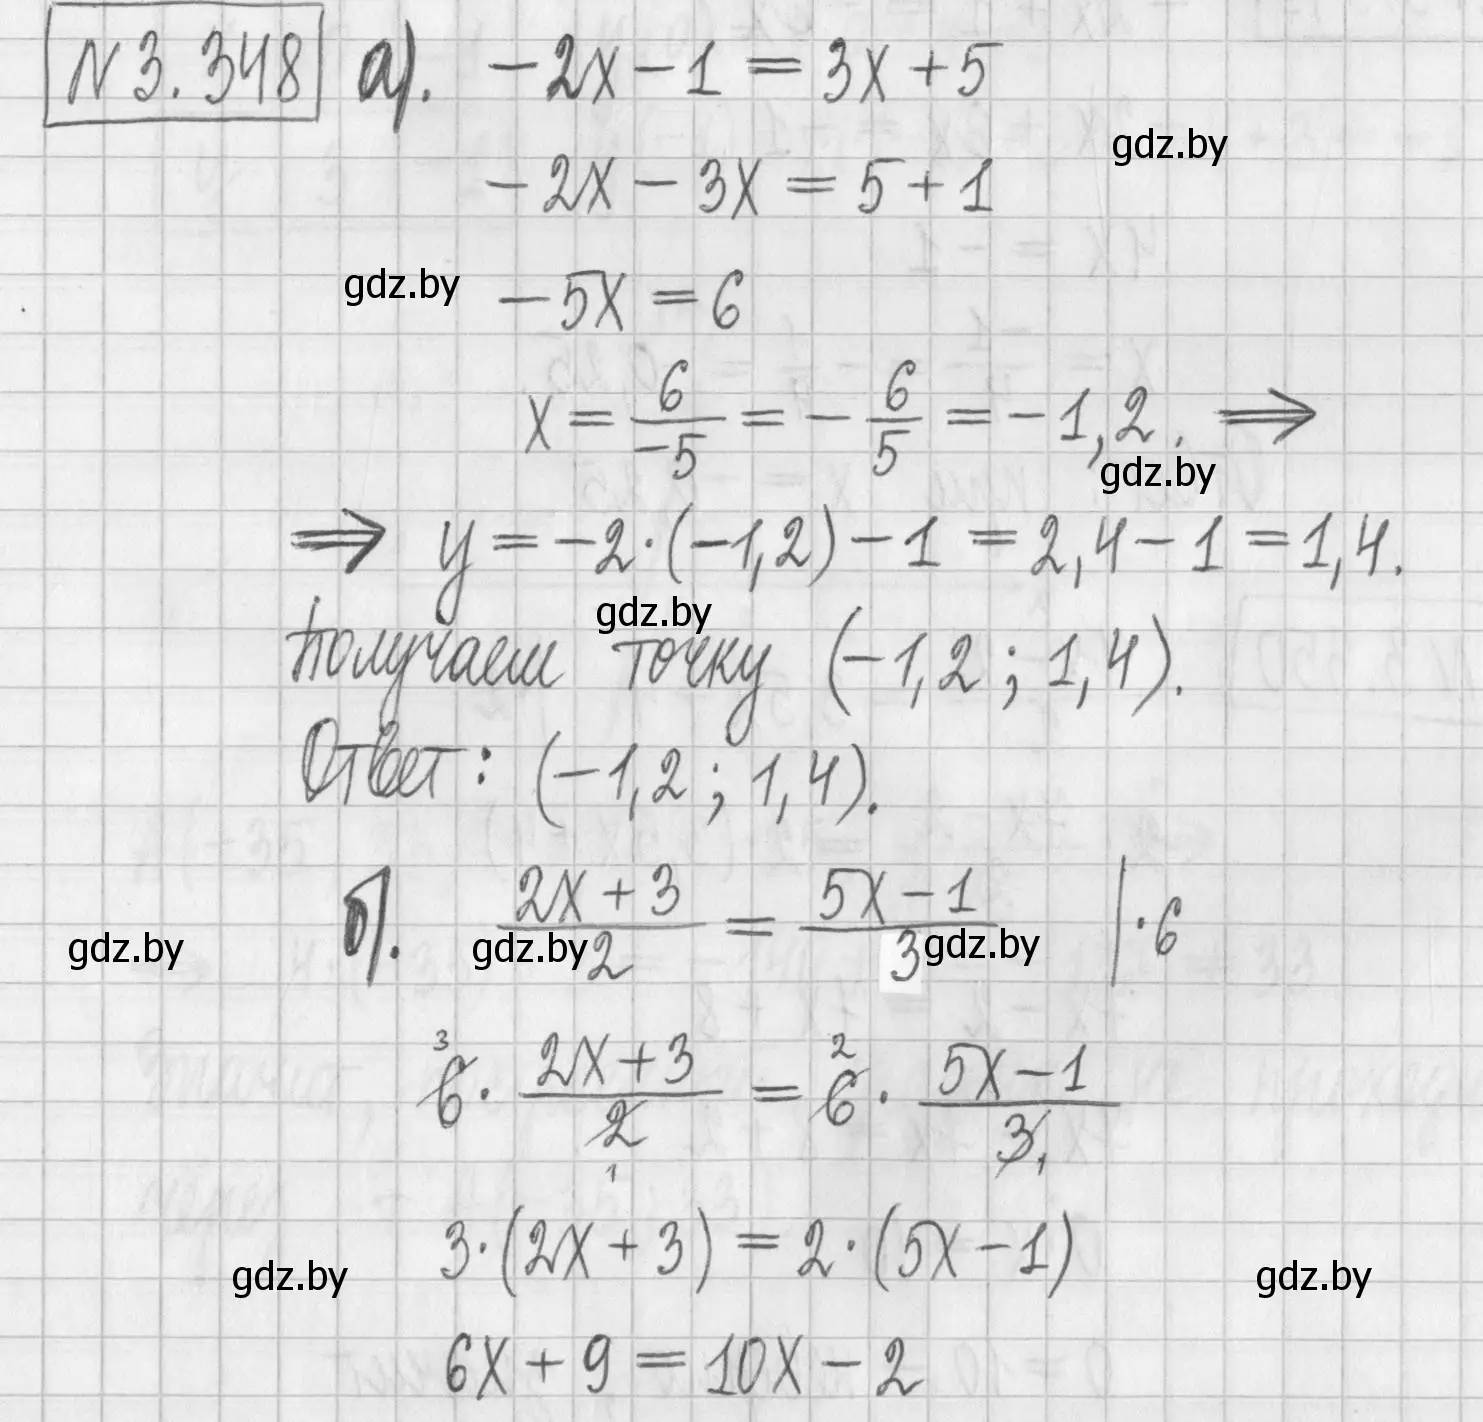 №3.348 а). -2x - 1 = 3x + 5
gdz.by
-2x - 3x = 5 + 1
gdz.by
-5x = 6
x = 6/-5 = - 6/5 = -1,2. ⇒
gdz.by
⇒ y = -2·(-1,2) - 1 = 2,4 - 1 = 1,4.
gdz.by
Получаем точку (-1,2 ; 1,4).
Ответ: (-1,2 ; 1,4).
б). (2x + 3)/2 = (5x - 1)/3 | ·6
gdz.by gdz.by gdz.by
3 2
6 · (2x + 3)/2 = 6 · (5x - 1)/3
1 1
3·(2x + 3) = 2·(5x - 1)
gdz.by gdz.by
6x + 9 = 10x - 2